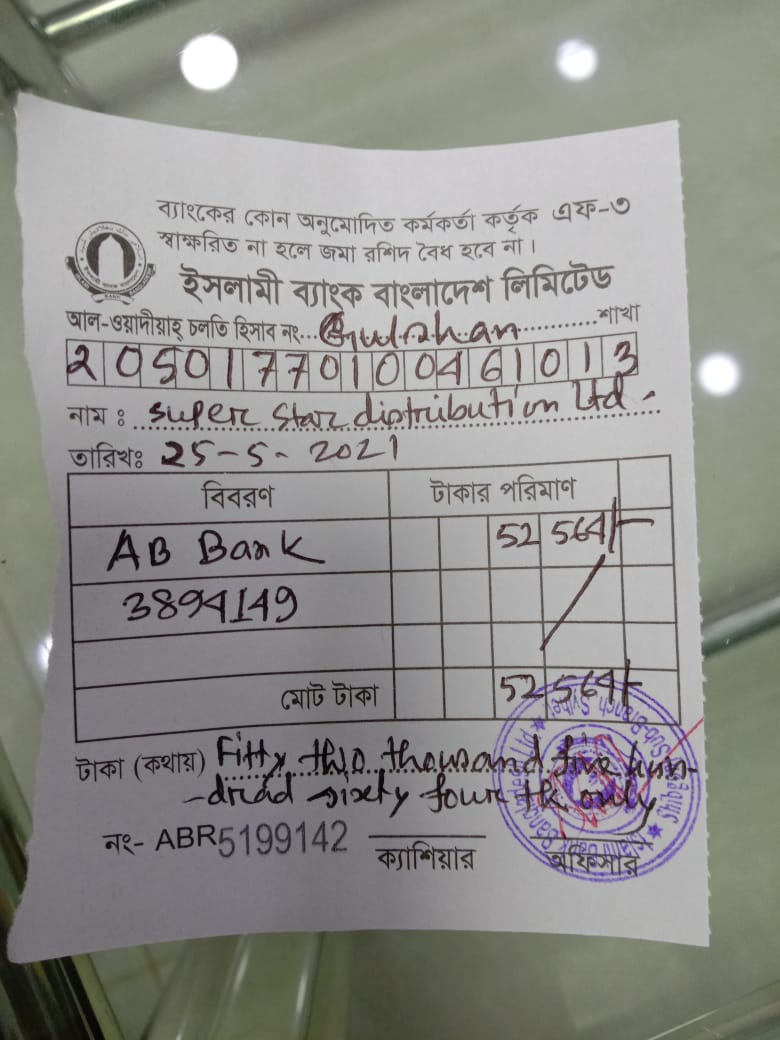 ব্যাংকের কোন অনুমোদিত কর্মকর্তা কর্তৃক এফ-৩
স্বাক্ষরিত না হলে জমা রশিদ বৈধ হবে না।
ইসলামী ব্যাংক বাংলাদেশ লিমিটেড
আল-ওয়াদীয়াহ্ চলতি হিসাব নং...Gulshan............শাখা
20501770100461013
নাম : Super Star distribution Ltd.
তারিখঃ 25-5-2021
বিবরণ টাকার পরিমাণ
AB Bank 52 564/-
3894149
মোট টাকা 52 564/-
টাকা (কথায়) Fifty two thousand five hun-
-dred sixty four tk only
নং- ABR5199142 ক্যাশিয়ার অফিসার